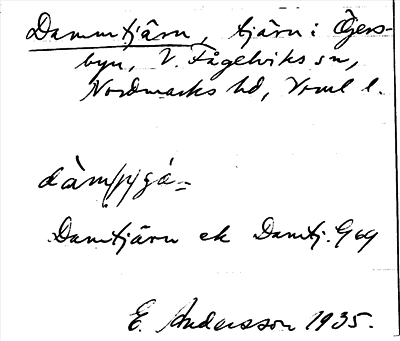 Dammtjärn, tjärn i Ögers-
byn, V. Fågelviks sn,
Nordmarks hd, Vrml l.
Damtjärn ek Damtj. G69
E. Andersson 1935.